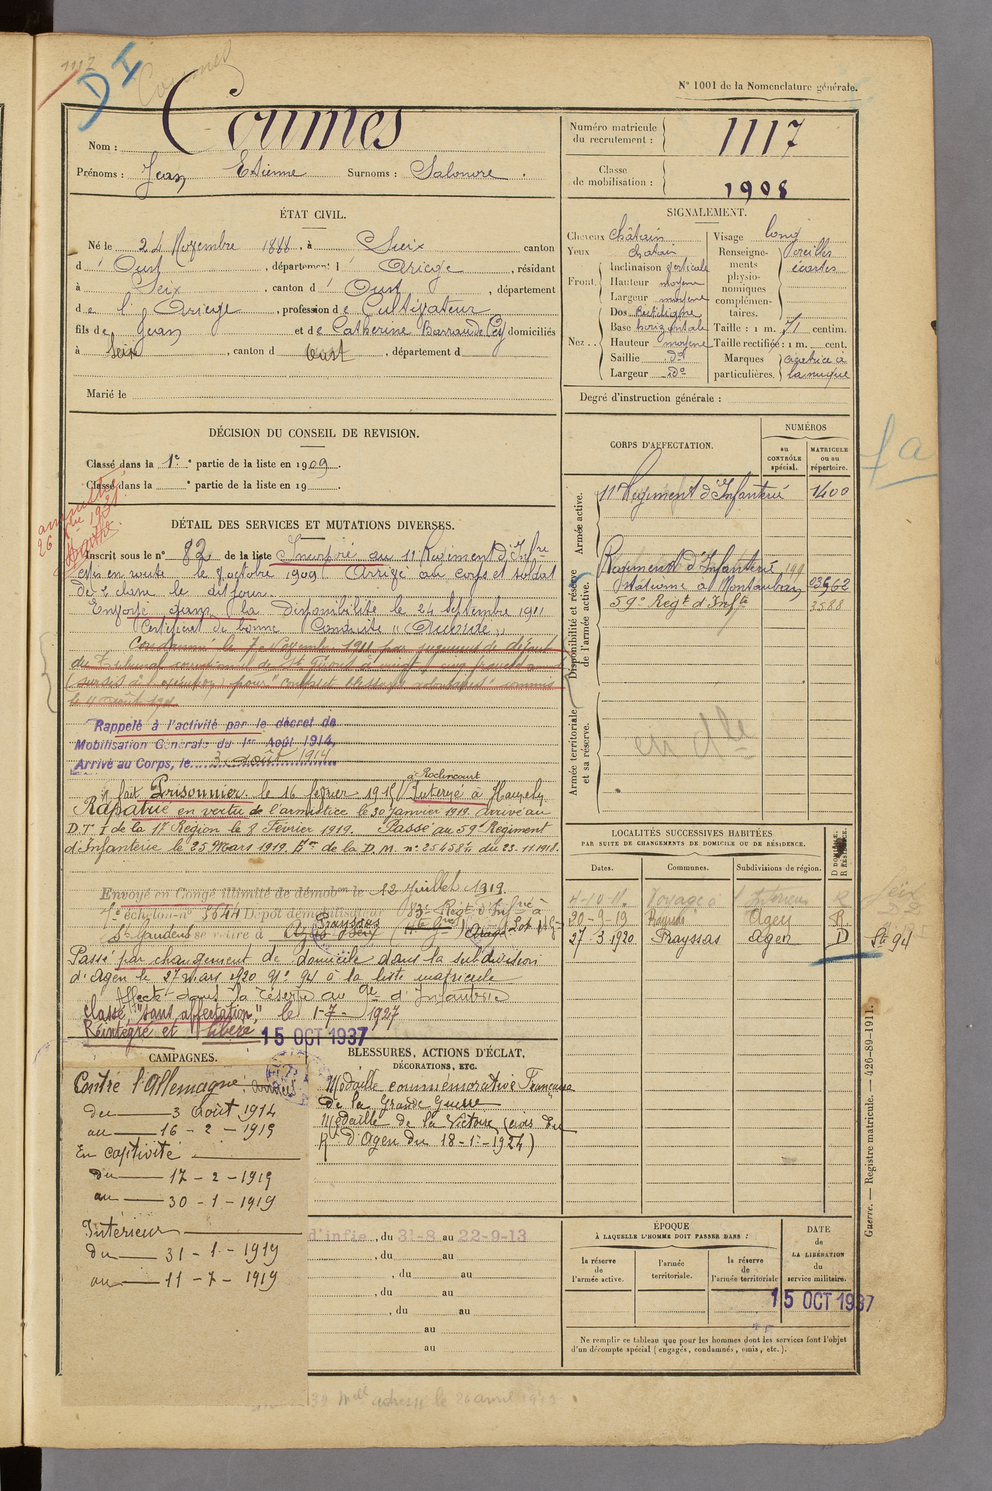 1117
D I
Coumes
N° 1001 de la Nomenclature générale.
Nom : Coumes
Prénoms : Jean Etienne Surnoms :
Numéro matricule du recrutement : 1117
Classe de mobilisation : 1908
ÉTAT CIVIL.
Né le 24 Novembre 1888, à Seix canton
d' Oust, département d' Ariège, résidant
à Seix, canton d' Oust, département
de l'Ariège, profession de Cultivateur
fils de Jean et de Catherine domiciliés
à Seix, canton d Oust, département d
Marié le
SIGNALEMENT.
Cheveux châtain
Yeux chatain
Front. Inclinaison verticale
Hauteur moyenne
Largeur moyenne
Nez.. Dos Rectiligne
Base horizontale
Hauteur moyenne
Saillie do
Largeur do
Visage long
Renseignements physionomiques complémentaires. Oreilles écartées
Taille : 1 m. 71 centim.
Taille rectifiée : 1 m. cent.
Marques particulières. cicatrice à la nuque
Degré d'instruction générale :
DÉCISION DU CONSEIL DE REVISION.
Classé dans la 1e partie de la liste en 1909.
Classé dans la e partie de la liste en 19
DÉTAIL DES SERVICES ET MUTATIONS DIVERSES.
Inscrit sous le n° 82 de la liste Incorporé au 11 Régiment d'Infrie
et mis en route le 7 octobre 1909 Arrivé au corps et soldat
de 2e classe le dit jour.
Envoyé dans la disponibilité le 24 Septembre 1911
Certificat de bonne Conduite "Accordé"
Condamné le 7 Novembre 1911 par jugement de défaut
du Tribunal correctionnel de St Girons à vingt cinq francs
(sursis à l'exécution) pour "coups et blessures volontaires" commis
le 11 août 1911
Rappelé à l'activité par le décret de
Mobilisation Générale du 1er Août 1914,
Arrivé au Corps, le 3 août 1914
fait Prisonnier le 16 février 1915 à Roclincourt Interné à
Rapatrié en vertu de l'armistice le 30 Janvier 1919. arrivé au
D.T.I de la 17 Région le 8 Février 1919. Passé au 59e Régiment
d'Infanterie le 25 Mars 1919. de la D.M. n° 25458 du 23.11.1918.
Envoyé en Congé illimité de démobon le 12 Juillet 1919.
échelon n° 3644 Dépôt démobilisateur Regt d'Infie à
St Gaudens se retire à Prayssas
Passé par changement de domicile dans la subdivision
d'Agen le 27 Mars 1920 N° 94 à la liste matricule
Affecté dans la réserve au 9e d'Infanterie
classé "sans affectation" le 1-7-1927
Réintégré et libéré 15 OCT 1937
CORPS D'AFFECTATION.
NUMÉROS
au CONTRÔLE spécial.
MATRICULE ou au répertoire.
Armée active.
11 Régiment d'Infanterie 1400
Disponibilité et réserve de l'armée active.
Régiment d'Infanterie
Stationné à Montauban
59e Régt d'Infie 3588
Armée territoriale et sa réserve.
fa
LOCALITÉS SUCCESSIVES HABITÉES
PAR SUITE DE CHANGEMENTS DE DOMICILE OU DE RÉSIDENCE.
Dates. Communes. Subdivisions de région. D DOMICILE. R RÉSIDENCE.
20-9-19 Agen R
27-3-1920 Prayssas Agen D
CAMPAGNES.
Contre l'Allemagne
du 3 Août 1914
au 16 - 2 - 1915
En captivité
du 17 - 2 - 1915
au 30 - 1 - 1919
Intérieur
du 31 - 1 - 1919
au 11 - 7 - 1919
BLESSURES, ACTIONS D'ÉCLAT,
DÉCORATIONS, ETC.
Médaille commémorative Française
de la Grande Guerre
Médaille de la Victoire (avis du
Rt d'Agen du 18-1-1924)
d'infie, du 31-8 au 22-9-13
, du au
, du au
, du au
, du au
au
au
ÉPOQUE
À LAQUELLE L'HOMME DOIT PASSER DANS :
la réserve de l'armée active.
l'armée territoriale.
la réserve de l'armée territoriale
DATE de LA LIBÉRATION du service militaire.
15 OCT 1937
Ne remplir ce tableau que pour les hommes dont les services font l'objet
d'un décompte spécial (engagés, condamnés, omis, etc.).
Guerre. — Registre matricule. — 426-89-1911.